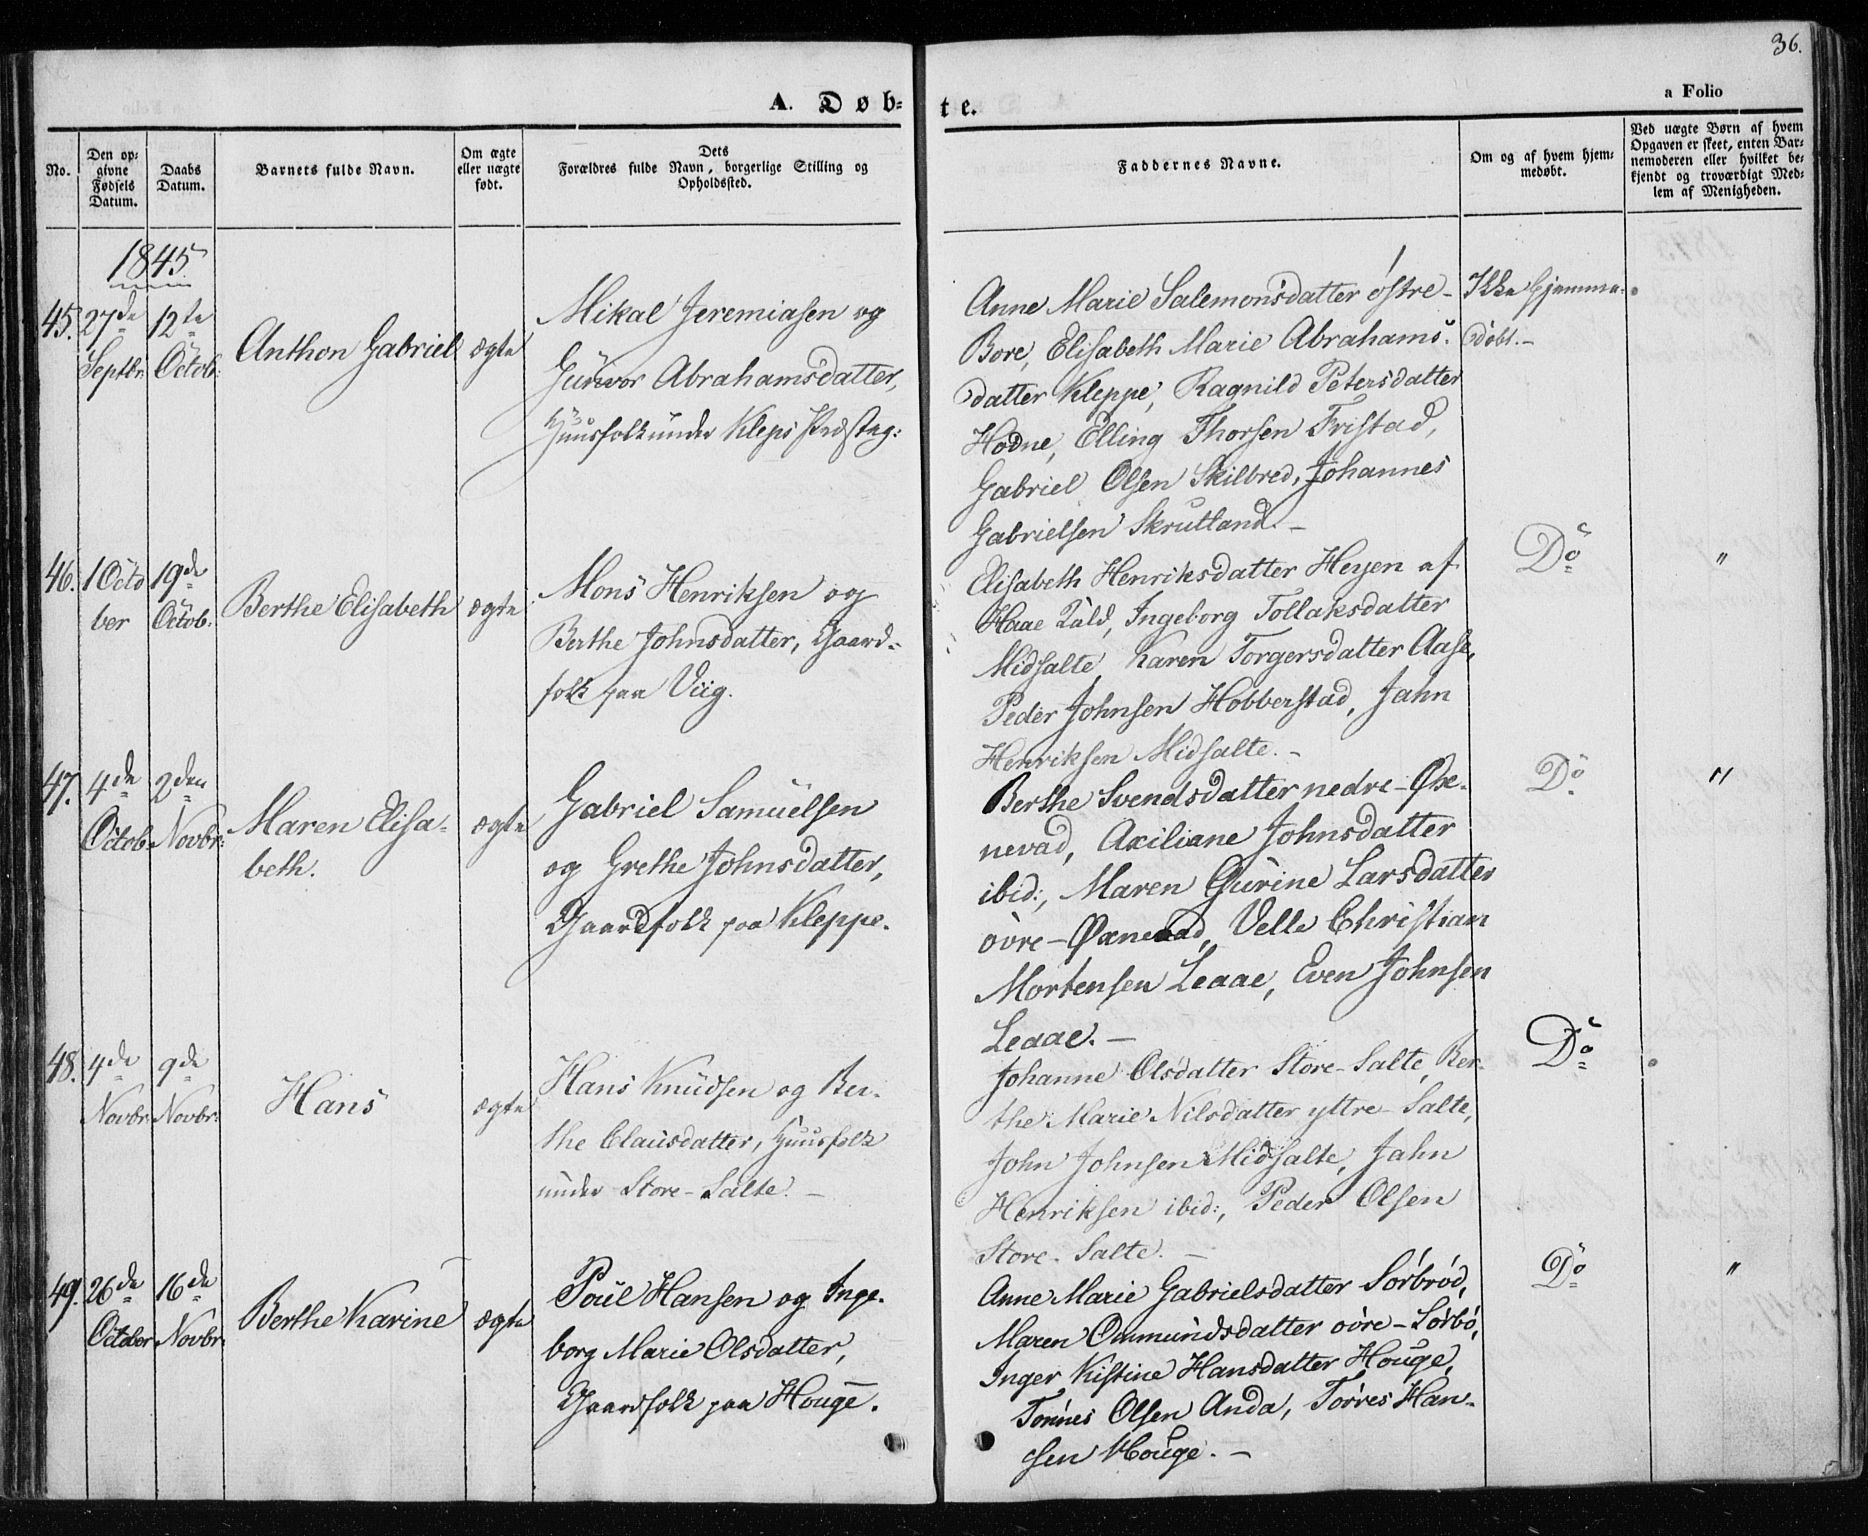 36.
A. Døb-
te.
a Folio
No.
Den op-
givne
Fødsels
Datum.
Daabs
Datum.
Barnets fulde Navn.
Om ægte
eller uægte
født.
Dets
Forældres fulde Navn, borgerlige Stilling og
Opholdssted.
Faddernes Navne.
Om og af hvem hjem-
medøbt.
Ved uægte Børn af hvem
Opgaven er skeet, enten Bar-
nemoderen eller hvilket be-
kjendt og troværdigt Med-
lem af Menigheden.
1845
45.
27de
Septbr:
12te
Octob:
Anthon Gabriel
ægte
Mikal Jeremiasen og
Gurwor Abrahamsdatter,
Huusfolk under Kleps Præsteg:
Anne Marie Salemonsdatter østre-
Bore, Elisabeth Marie Abrahams-
datter Kleppe, Ragnild Petersdatter
Hodne, Elling Thorsen Fristad,
Gabriel Olsen Skilbred, Johannes
Gabrielsen Skrutland.-
Ikke hjemme-
døbt.-
46.
1 Octo
ber
19de
Octob:
Berthe Elisabeth
ægte
Mons Henriksen og
Berthe Johnsdatter, Gaard-
folk paa Viig.
Elisabeth Henriksdatter af
Haae Ingeborg Tollaksdatter
Midsalte Karen Torgersdatter Aase,
Peder Johnsen Hobberstad, Jahn
Henriksen Midsalte.-
Do
"
47.
4de
Octob.
2den
Novbr:
Maren Elisa-
beth.
ægte
Gabriel Samuelsen
og Grethe Johnsdatter,
Gaardfolk paa Kleppe.
Berthe Svendsdatter nedre-Øxe-
nevad, Axiliane Johnsdatter
ibid:, Maren Gurine Larsdatter
øvre-Øxnevad, Velle Christian
Mortensen Leaae, Even Johnsen
Leaae.-
Do
"
48.
4de
Novbr:
9de
Novbr:
Hans
ægte
Hans Knudsen og Ber-
the Clausdatter, Huusfolk
under Store-Salte.-
Johanne Olsdatter Store-Salte, Ber-
the Marie Nilsdatter yttre-Salte,
John Johnsen Midsalte, Jahn
Henriksen ibid:, Peder Olsen
Store-Salte.-
Do
49.
26de
October
16de
Novbr:
Berthe Karine
ægte
Poul Hansen og Inge-
borg Marie Olsdatter,
Gaardfolk paa Houge.
Anne Marie Gabrielsdatter Sørbrød,
Maren Ommundsdatter øvre-Sørbø,
Inger Kistine Hansdatter Houge,
Tønnes Olsen Anda, Torres Han-
sen Houge.-
Do
"